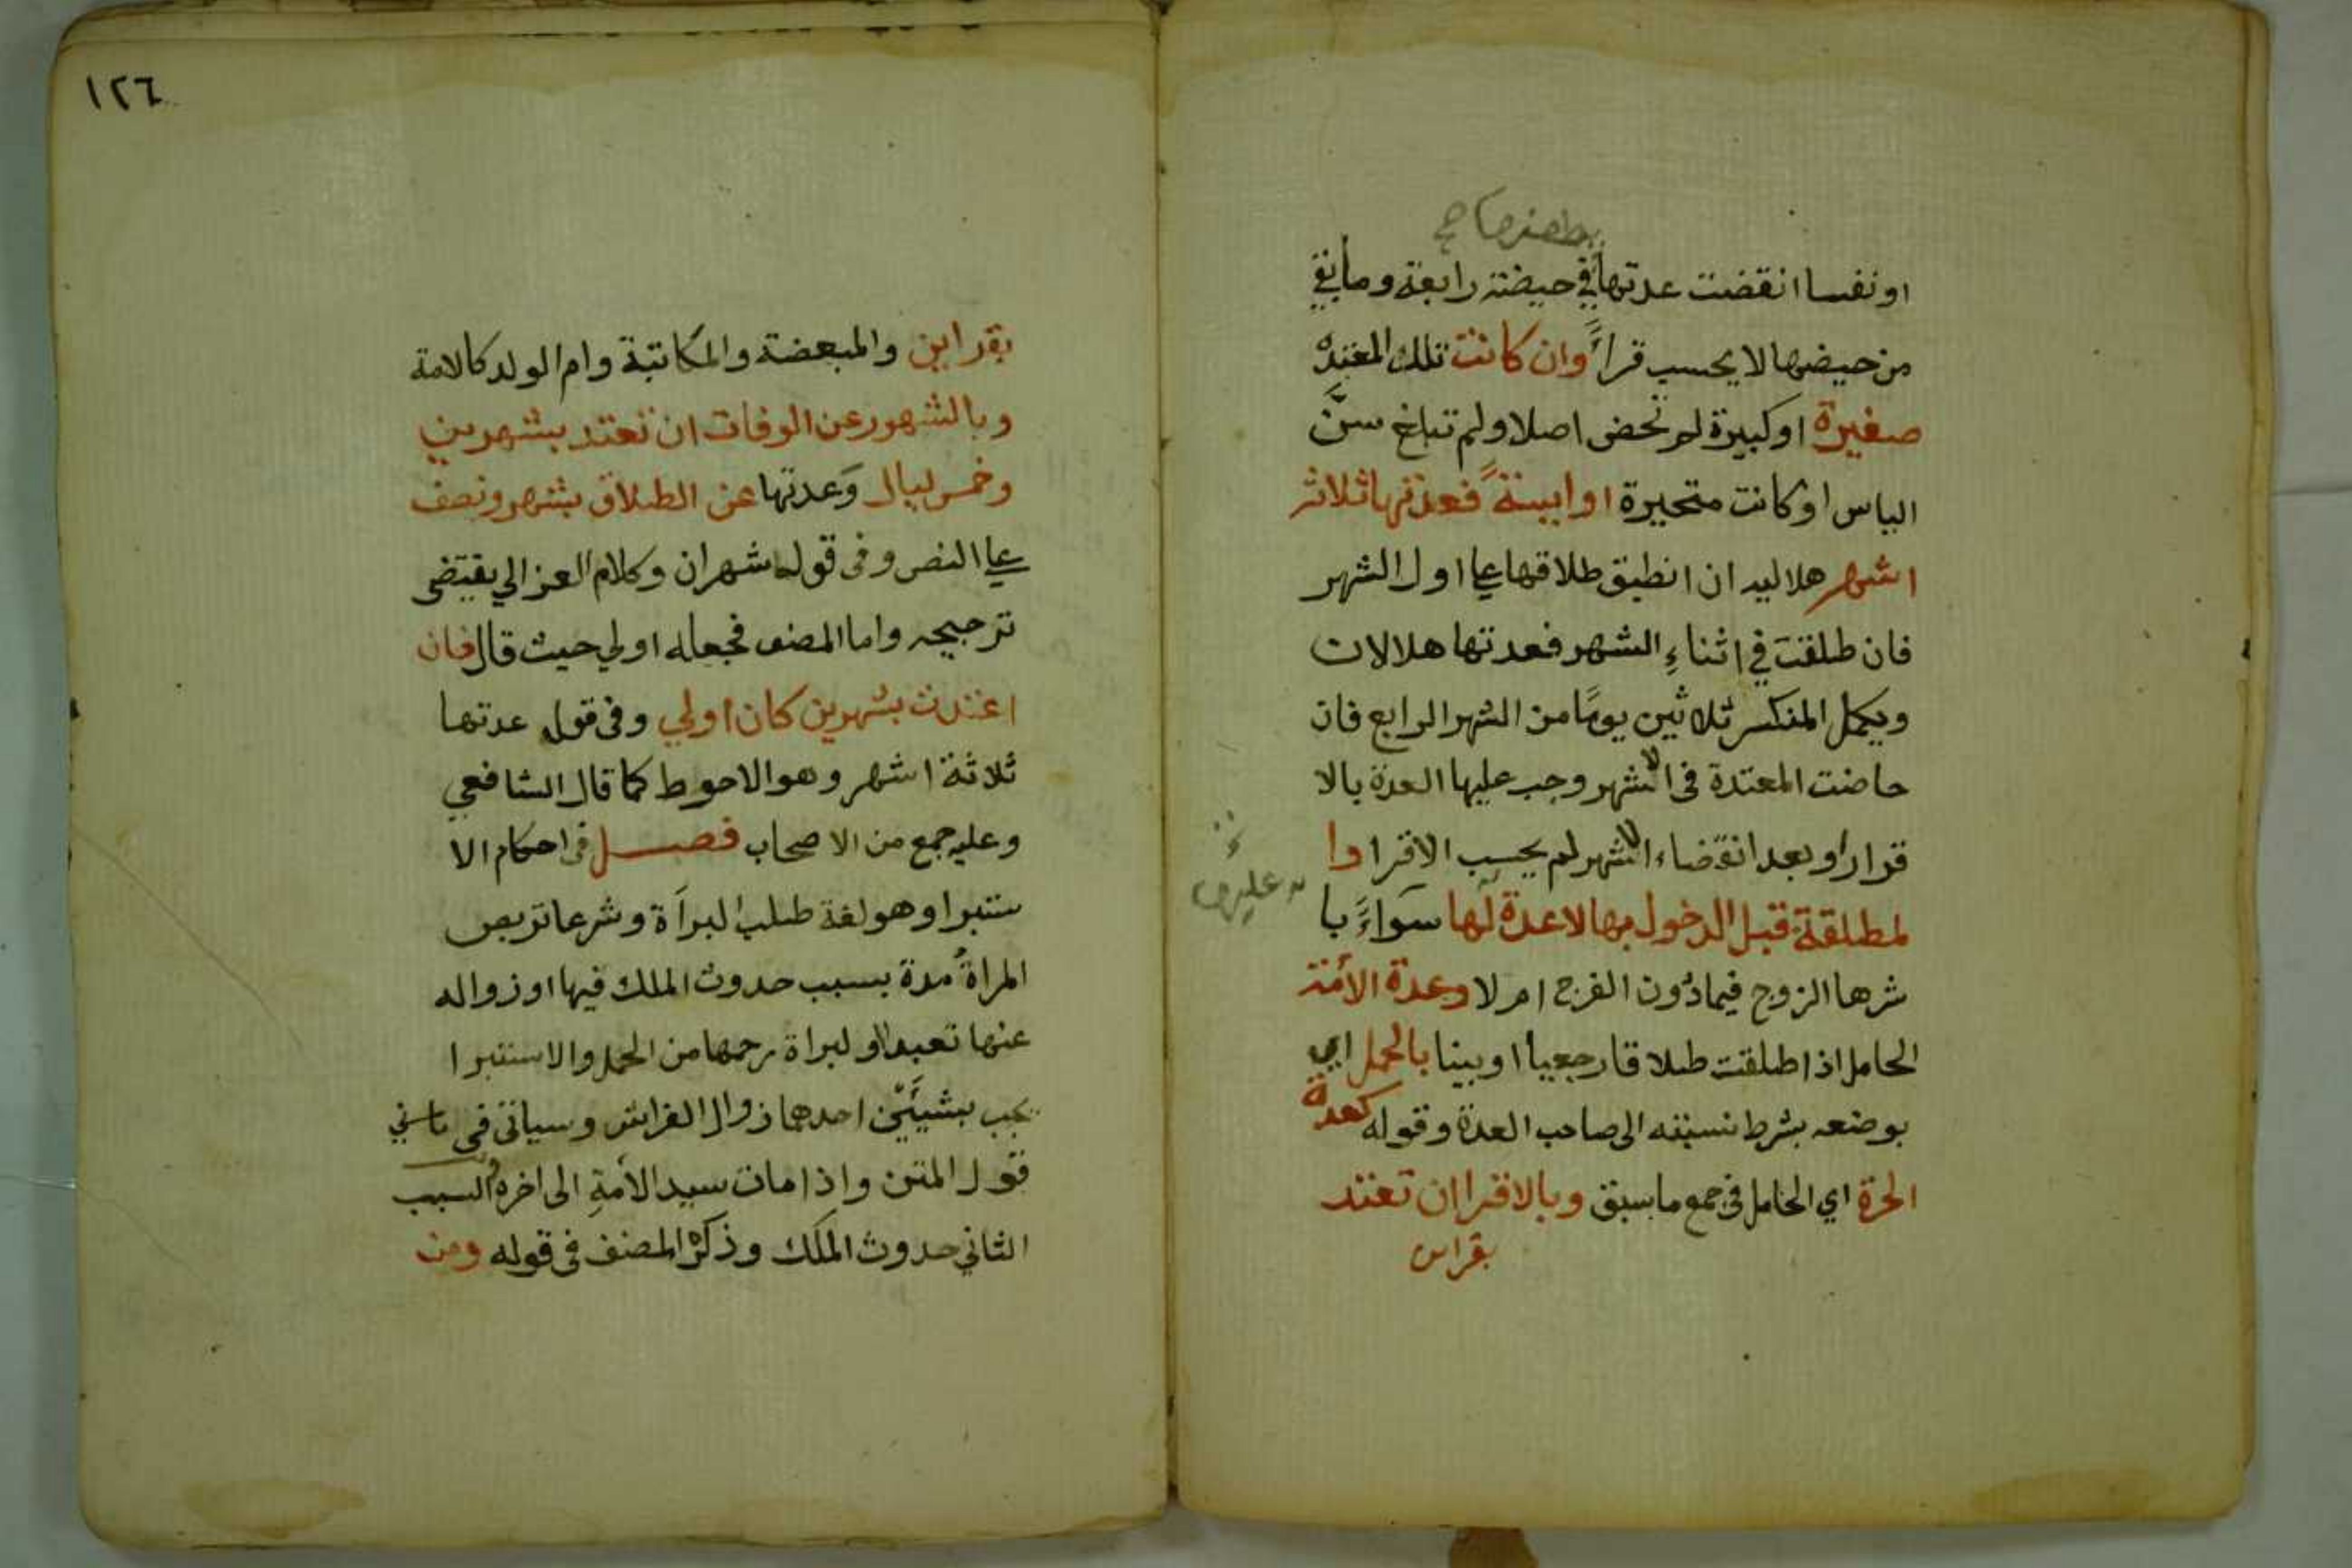 بطعنها صح
او نفسا انقضت عدتها في حيضة رابعة وما بقي
من حيضها لا يحسب قراءً وان كانت تلك المعتدة
صغيرة او كبيرة لم تحض اصلا ولم تبلغ سنَّ
الياس او كانت متحيرة او ايسةً فعدتها ثلاثة
اشهر هلالية ان انطبق طلاقها على اول الشهر
فان طلقت في اثناءِ الشهر فعدتها هلالان
ويكمل المنكسر ثلاثين يومًا من الشهر الرابع فان
حاضت المعتدة في الاشهر وجب عليها العدة بالا
قرار او بعد انقضاء الاشهر لم يحسب الاقرا وا
لمطلقة قبل الدخول بها لا عدة لها سَواءً با
شرها الزوج فيما دون الفرج ام لا وعدة الأمة
الحامل اذا طلقت طلاقا رجعيا او بينا بالحمل اي
بوضعه بشرط نسبته الى صاحب العدة وقوله كعدة
الحرة اي الحامل في جمع ما سبق وبالاقرا ان تعتد
بقراين
١٢٦
بقراين والمبعضة والمكاتبة وام الولد كالامة
وبالشهور عن الوفات ان تعتد بشهرين
وخمس ليال وَعدتها عن الطلاق بشهر ونصف
على النص وفي قوله شهران وكلام الغزالي يقتضى
ترجيحه واما المصنف فجعله اولي حيث قال فان
اعتدت بشهرين كان اولي وفي قول عدتها
ثلاثة اشهر وهو الاحوط كما قال الشافعي
وعليه جمع من الاصحاب فصل في احكام الا
ستبرا وهو لغة طلب البرآة وشرعا تربص
المراة مدة بسبب حدوث الملك فيها او زواله
عنها تعبدا او لبراة رحمها من الحمل والاستبرا
يجب بشيئَين احدهما زوال الفراش وسياتي في
قول المتن واذا مات سيد الأمةِ الى اخره والسبب
الثاني حدوث الملك وذكره المصنف في قوله ومن